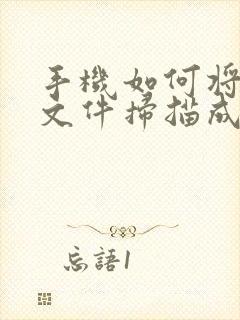 手機如何將
文件掃描成
忘語1